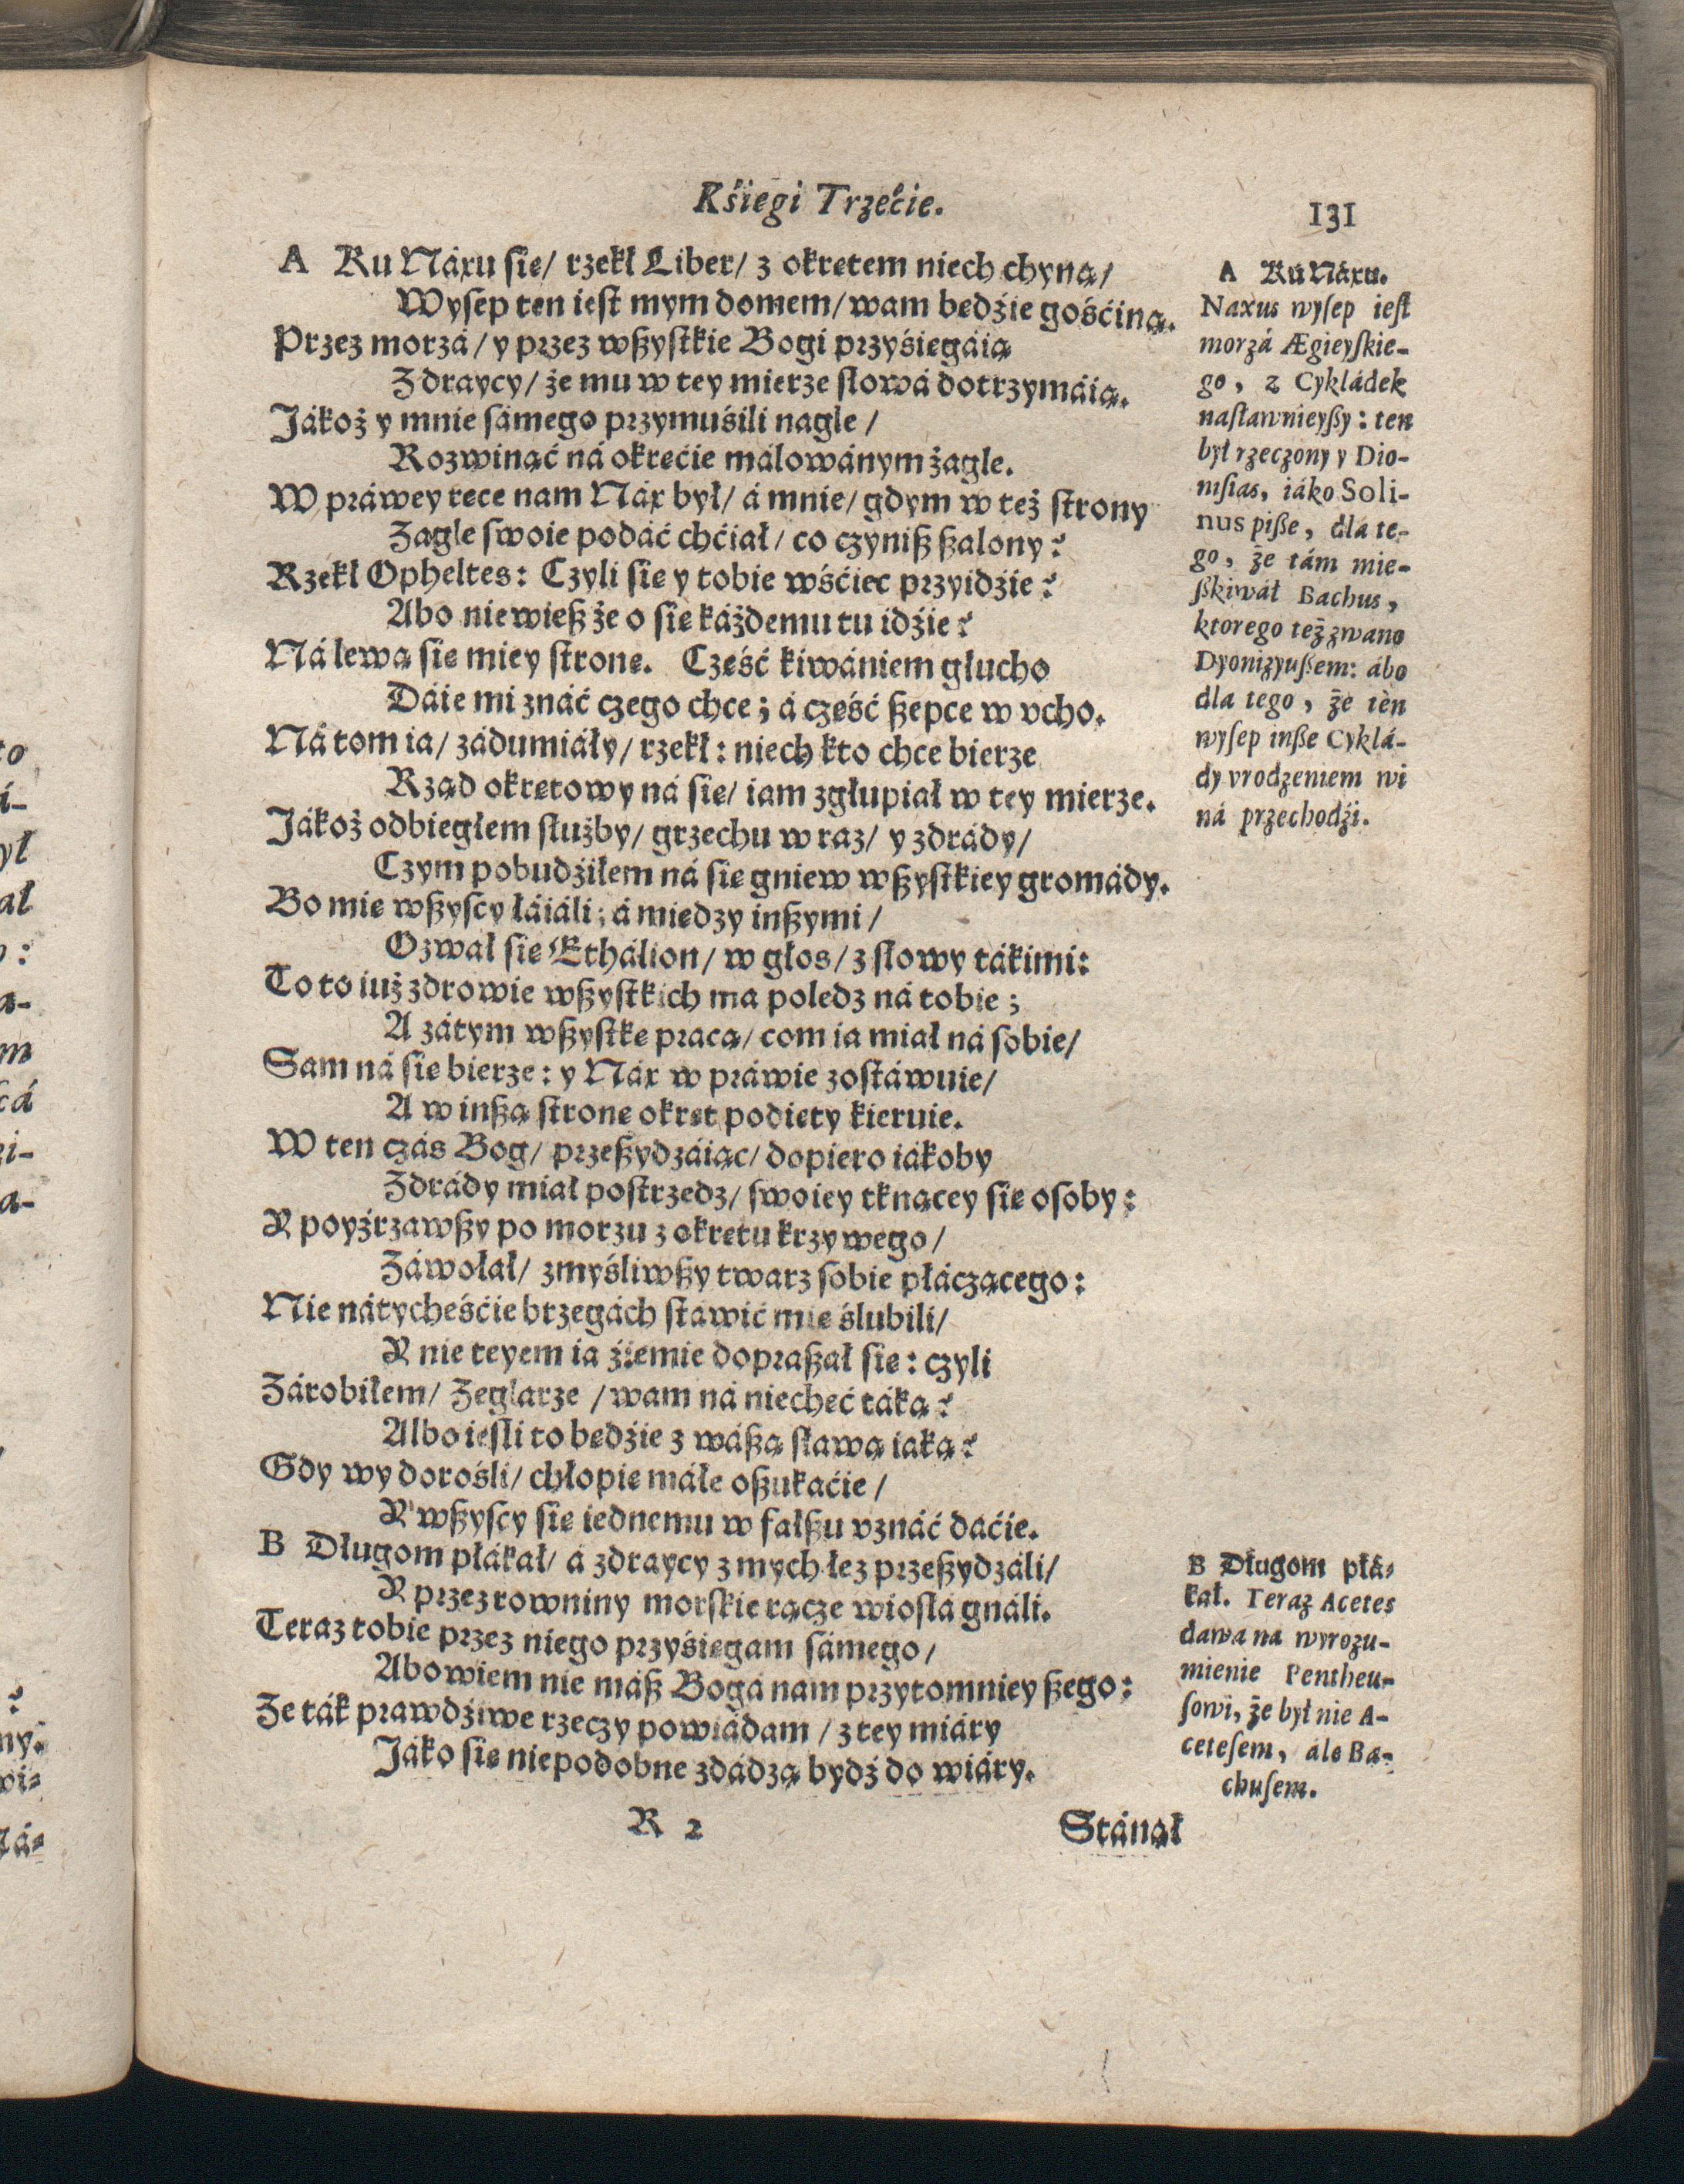 Kśięgi Trzećie.
131
A Ku Náxu się/ rzekł Liber/ z okrętem niech chyną/
Wysep ten iest mym domem/ wam będźie gośćiną.
Przez morzá/ y przez wßystkie Bogi przyśięgáią
Zdraycy/ że mu w tey mierze słowá dotrzymáią.
Jákoż y mnie sámego przymuśili nagle/
Rozwinąć ná okręćie málowánym żagle.
W práwey ręce nam Náx był/ á mnie/ gdym w też strony
Zagle swoie podáć chćiał/ co czyniß ßalony?
Rzekł Opheltes: Czyli się y tobie wśćiec przyidźie?
Abo nie wieß że o się káżdemu tu idźie?
Ná lewą się miey stronę. Część kiwániem głucho
Dáie mi znáć czego chce; á część ßepce w vcho.
Ná tom ia/ zádumiáły/ rzekł: niech kto chce bierze
Rząd okrętowy ná się/ iam zgłupiał w tey mierze.
Jákoż odbiegłem służby/ grzechu w raz/ y zdrády/
Czym pobudźiłem ná się gniew wßystkiey gromády.
Bo mię wßyscy łáiáli; á między inßymi/
Ozwał się Ethálion/ w głos/ z słowy tákimi:
To to iuż zdrowie wßystkich ma polędz ná tobie;
A zátym wßystkę pracą/ com ia miał ná sobie/
Sam ná się bierze: y Náx w práwie zostáwuie/
A w inßą stronę okręt podięty kieruie.
W ten czás Bog/ przeßydzáiąc/ dopiero iákoby
Zdrády miał postrzedz/ swoiey tknącey się osoby:
Y poyźrzawßy po morzu z okrętu krzywego/
Záwołał/ zmyśliwßy twarz sobie płáczącego:
Nie ná tycheśćie brzegách stáwić mię ślubili/
Y nie teyem ia źiemie dopraßał się: czyli
Zárobiłem/ Zeglarze/ wam ná niechęć táką?
Albo ieśli to będźie z wáßą sławą iaką?
Gdy wy dorośli/ chłopię máłe oßukaćie/
Y wßyscy się iednemu w fałßu vznáć daćie.
B Długom płákał/ á zdraycy z mych łez przeßydzáli/
Y przez rowniny morskie rącze wiosłá gnáli.
Teraz tobie przez niego przyśięgam sámego/
Abowiem nie máß Bogá nam przytomnieyßego:
Ze ták prawdźiwe rzeczy powiádam/ z tey miáry
Jáko się niepodobne zdádzą bydź do wiáry.
R 2
Stánął
A Ku Náxu.
Naxus wysep iest
morzá Ægieyskie-
go, z Cykládek
nasławnieyßy: ten
był rzeczony y Dio-
nisias, iáko Soli-
nus piße, dla te-
go, że tám mie-
ßkiwáł Bachus,
ktorego też zwano
Dyonizyußem: ábo
dla tego, że ten
wysep inße Cyklá-
dy vrodzeniem wi
ná przechodźi.
B Długom płá-
kał. Teraz Acetes
dawa na wyrozu-
mienie Pentheu-
sowi, że był nie A-
cetesem, ále Ba-
chusem.